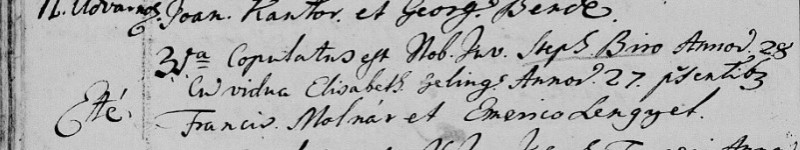 N. Udvarnok. Joan. Kantor. et Georg. Bende.
31a Copulatus est Nob. Juv. Steph. Biro Annor. 28
Cu vidua Elisabeth. Zeling. Annor. 27. psentibz
Etté. Francis. Molnár et Emerico Lengyel.